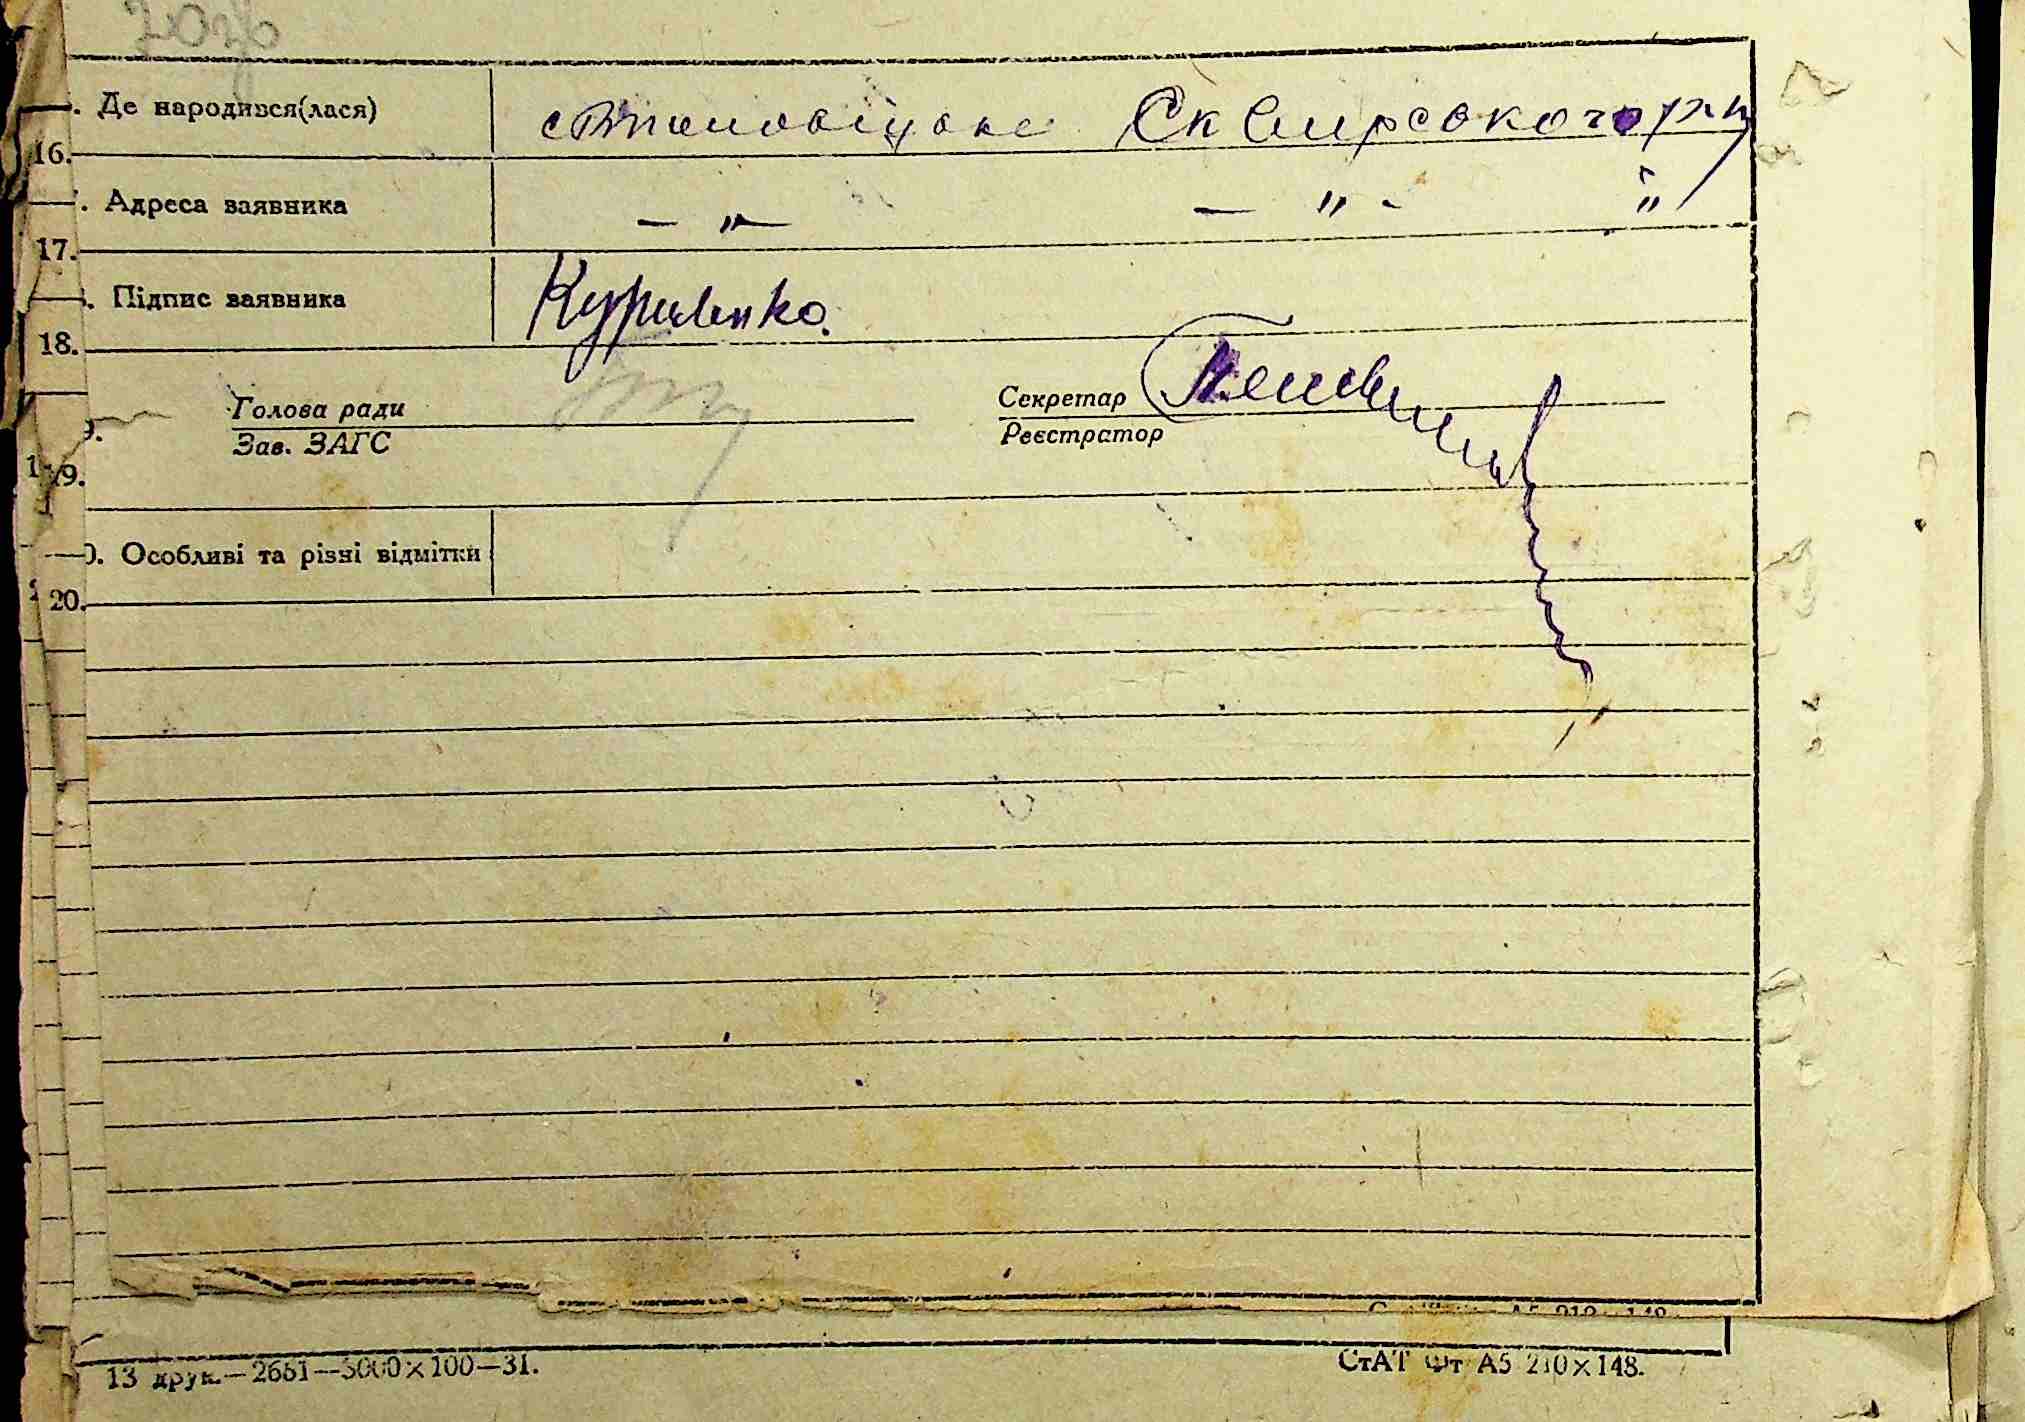 . Де народився(лася) Сквирського р-ну
16.
. Адреса заявника — „ — — „ - „
17.
. Підпис заявника Куриленко.
18.
Голова ради Секретар
Зав. ЗАГС Реєстратор
9.
19.
0. Особливі та різні відмітки
20.
13 друк.—2681—5000×100—31. СтАТ Фт А5 210×148.